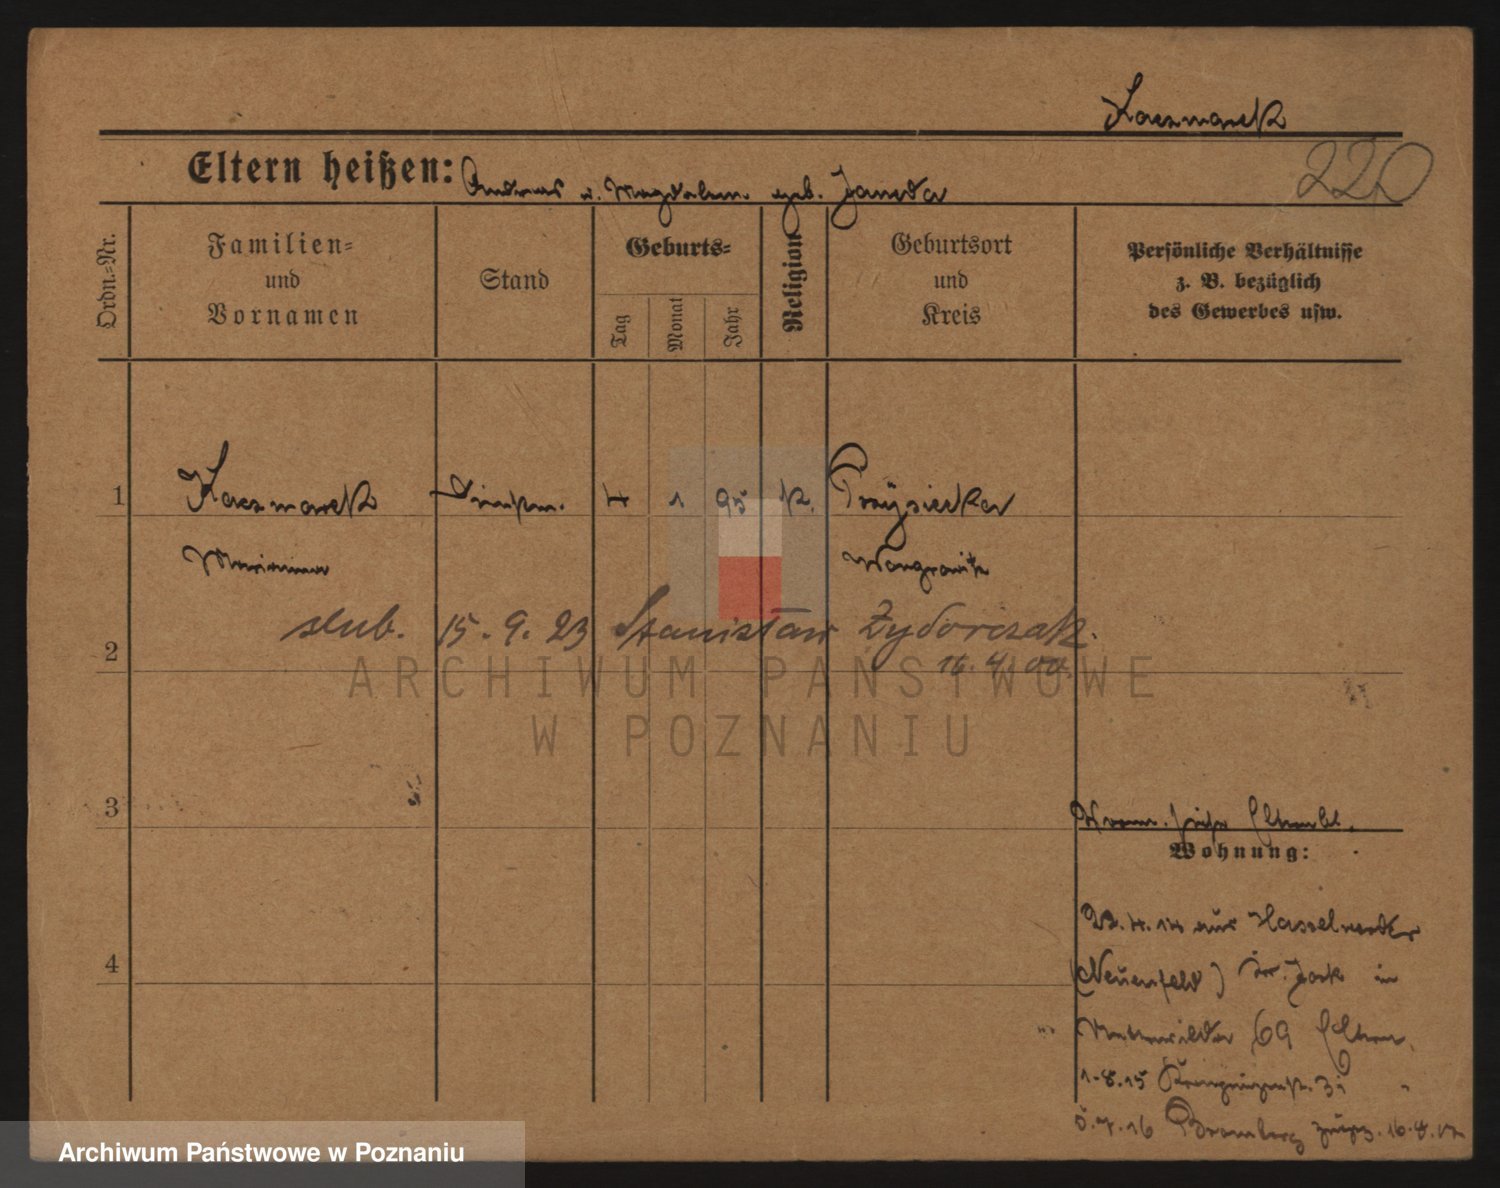 Kaczmarek
Eltern heißen: Andreas u. Magdalena geb. Janeda
220
Ordn.=Nr.
Familien=
und
Vornamen
Stand
Geburts=
Tag
Monat
Jahr
Religion
Geburtsort
und
Kreis
Persönliche Verhältnisse
z. B. bezüglich
des Gewerbes usw.
1 Kaczmarek 4 1 95 k. Przysieka
Marianna Wongrowitz
slub. 15. 9. 23 Stanisław Zydorczak.
2
16. 4. 00.
ARCHIWUM PAŃSTWOWE
W POZNANIU
3
Wohnung:
23. 4. 14 aus Hasselwerder
4
(Neuenfeld) Kr. Jork in
Unterwilda 69 Eltern.
1-8.15 Kronprinzenstr.
5.7.16 Bromberg
Archiwum Państwowe w Poznaniu